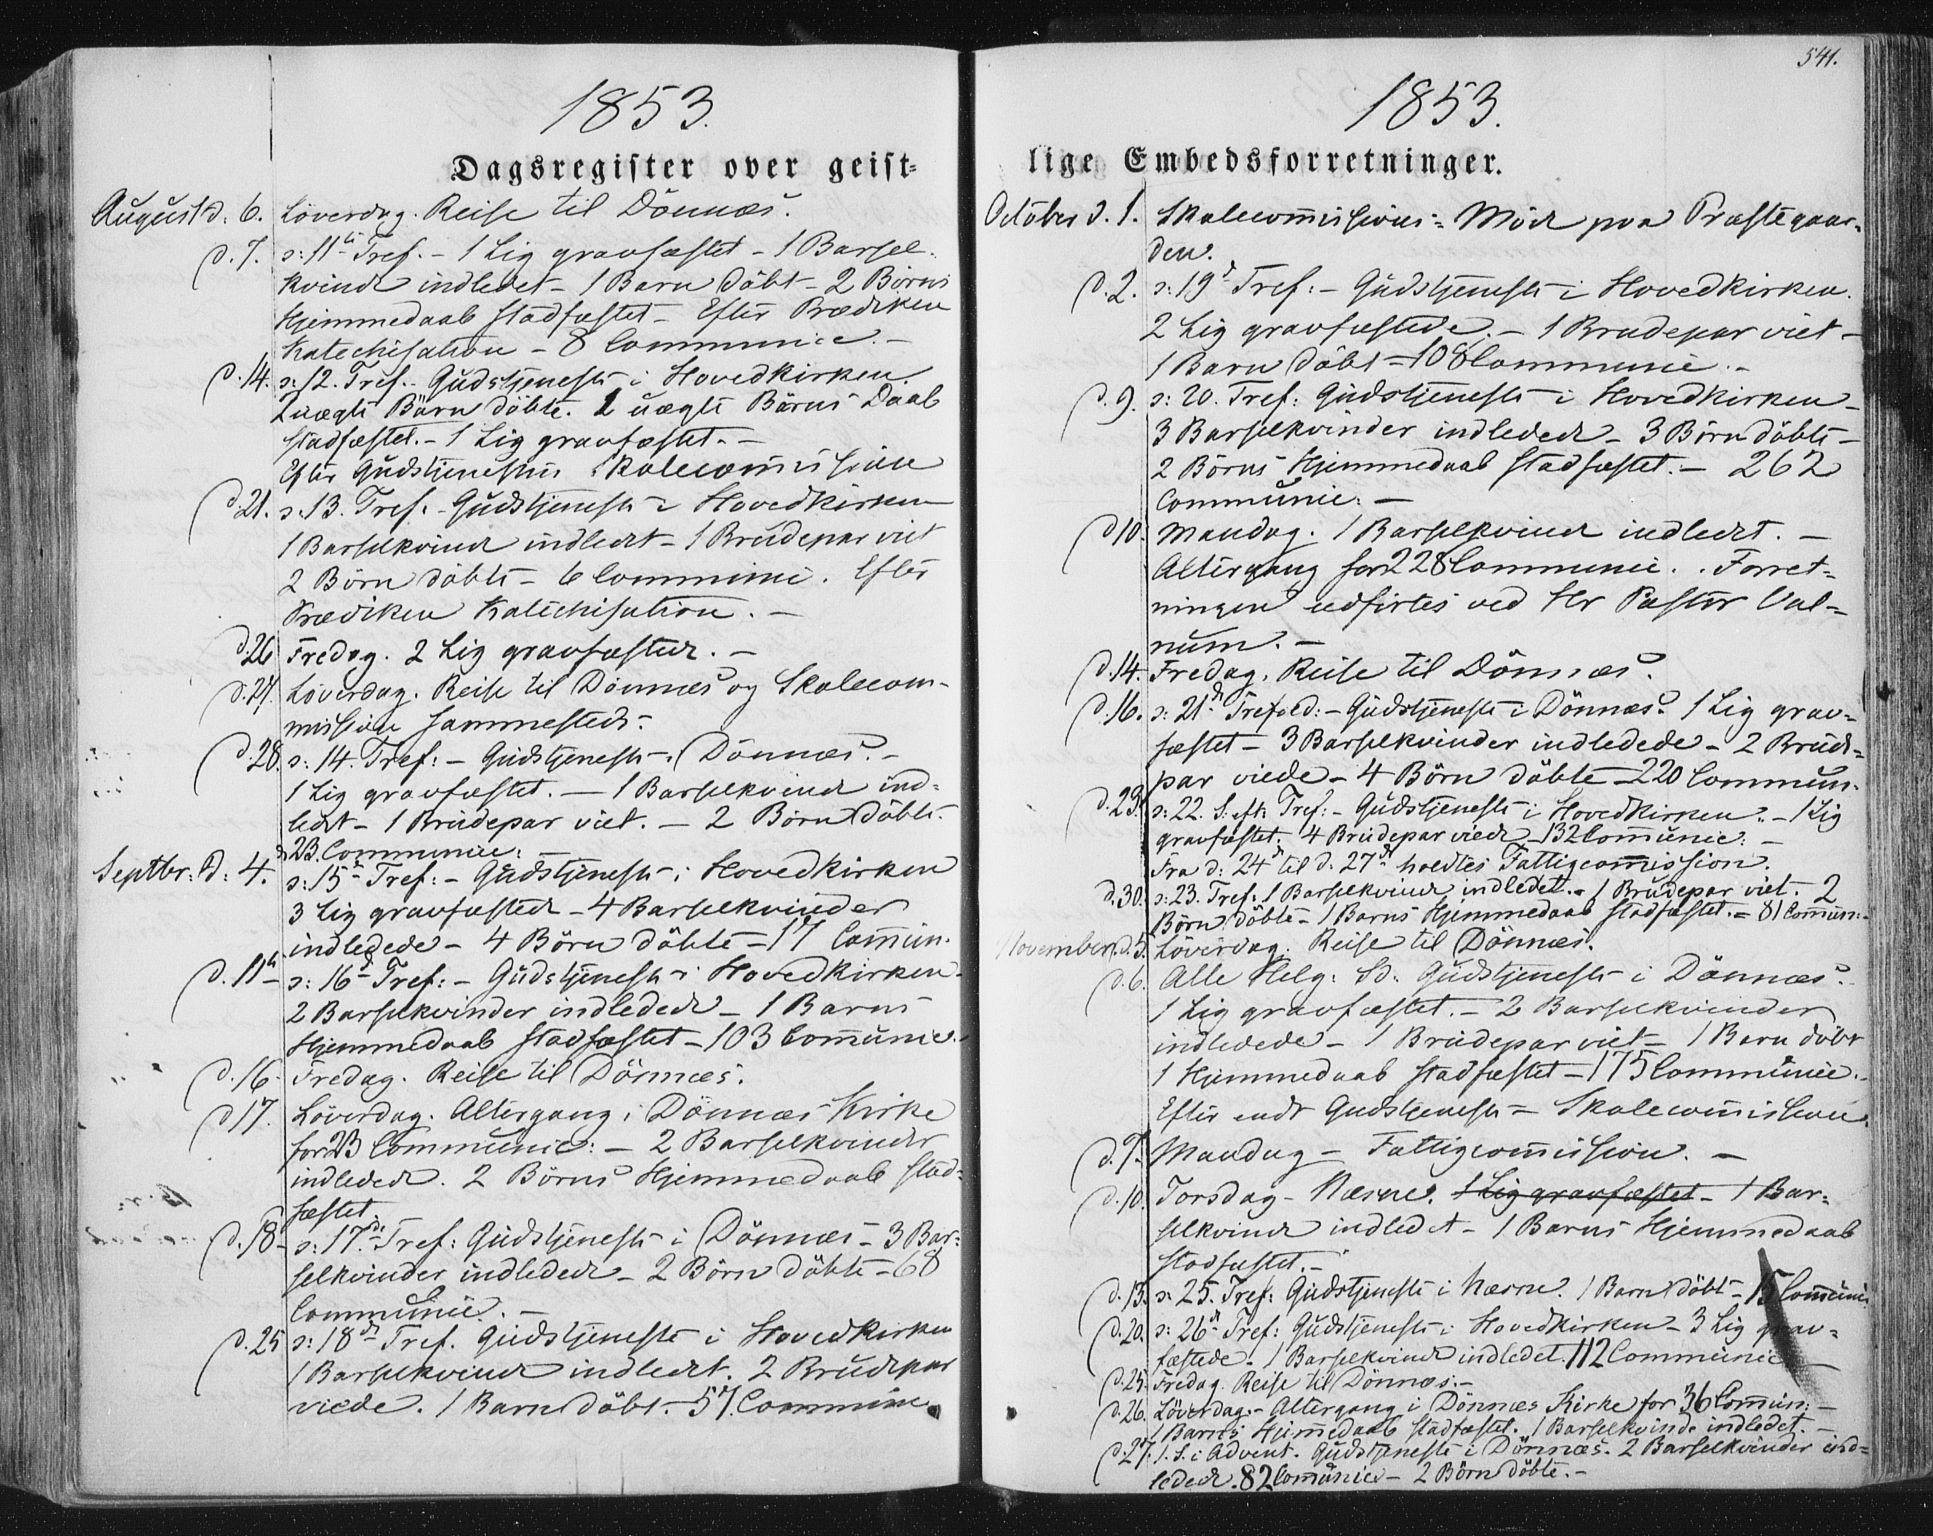 1853.
Dagsregister over geist-
August d. 6. Löverdag. Reise til Dönnæs.
d. 7. s: 11te Tref. - 1 Lig gravfæstet - 1 Barsel-
kvinde indledet - 1 Barn döbt - 2 Börns
Hjemmedaab stadfæstet - Efter Prædiken
Katechisation - 8 Communice. -
d. 14. s: 12. Tref.- Gudstjeneste i Hovedkirken
2 uægte Börn döbte. 2 uægte Börns Daab
stadfæstet. - 1 Lig gravfæstet. -
Efter Gudstjenesten Skolecom̅ission
d. 21. s. 13. Tref. - Gudstjeneste i Hovedkirken
1 Barselkvinde indledet - 1 Brudepar viet
2 Börn döbte - 6 Communi. Efter
Prædiken Katechisation. -
d. 26 Fredag. 2 Lig gravfæstede. -
d. 27. Löverdag. Reise til Dönnæs og Skolecom-
mission sammesteds. -
d. 28. s: 14. Tref: - Gudstjeneste i Dönnæs. -
1 Lig gravfæstet. - 1 Barselkvinde ind-
ledet - 1 Brudepar viet. - 2 Börn döbte.
23. Communice: -
Septbr: d: 4. s: 15de Tref: - Gudstjeneste i Hovedkirken
3 Lig gravfæstede - 4 Barselkvinder
indledede - 4 Börn döbte - 17 Com̅un.
d. 11te s: 16de Tref: - Gudstjeneste i Hovedkirken -
2 Barselkvinder indledede - 1 Barns
Hjemmedaab stadfæstet - 103 Com̅unice. -
d. 16. Fredag. Reise til Dönnæs.
d 17. Löverdag. Altergang i Dönnæs Kirke
for 23 Communic: - 2 Barselkvinder
indledede. 2 Börns Hjemmedaab stad-
fæstet.
d. 18 - s: 17de Tref: Gudstjeneste i Dönnæs - 3 Bar-
selkvinder indledede - 2 Börn döbte - 68
Communice. -
d. 25 s: 18de Tref. Gudstjeneste i Hovedkirken
1 Barselkvinde indledet. 2 Brudepar
viede. 1 Barn döbt. - 57. Commun
541.
1853.
lige Embedsforretninger.
October d. 1. Skolecom̅issions- Möde paa Præstegaar-
den.
d. 2. s: 19de Tref: - Gudstjeneste i Hovedkirken.
2 Lig gravfæstede. - 1 Brudepar viet -
1 Barn döbt - 108 Communic. -
d. 9. s: 20. Tref: Gudstjeneste i Hovedkirken -
3 Barselkvinder indledede - 3 Börn döbte -
2 Börns Hjemmedaab stadfæstet. - 262
Communic: -
d 10. Mandag. 1 Barselkvinde indledet. -
Altergang for 228 Communic. . Forret-
ningen udförtes ved Hr Pastor Val-
num. -
d. 14. Fredag. Reise til Dönnæs.
d. 16. s: 21de Trefold: - Gudstjeneste i Dönnæs. 1 Lig grav-
fæstet - 3 Barselkvinder indledede - 2 Brude-
par viede - 4 Börn döbte - 220 Commun.
d. 23. s: 22. S. eft. Tref: - Gudstjeneste i Hovedkirken. - 1 Lig
gravfæstet. 4 Brudepar viede - 132 Com̅unic: -
Fra d. 24de til d. 27de holdtes Fattigcom̅ission.
d. 30. s: 23. Tref. 1 Barselkvinde indledet. - 1 Brudepar viet. 2
Börn döbte - 1 Barns Hjemmedaab stadfæstet. - 81 Com̅un: -
November d. 5. Löverdag. Reise til Dönnæs.
d. 6. Alle Helg: D. Gudstjeneste i Dönnæs. -
1 Lig gravfæstet. - 2 Barselkvinder
indledede - 1 Brudepar viet - 1 Barn döbt
1 Hjemmedaab stadfæstet - 175 Communice. -
Efter endt Gudstjeneste - Skolecom̅ission.
d. 7. Mandag - Fattigcom̅ission. -
d. 10. Torsdag - Næsne. 1 Lig gravfæstet - 1 Bar-
selkvinde indledet - 1 Barns Hjemmedaab
stadfæstet. -
d. 13. s. 25. Tref: Gudstjeneste i Næsne. 1 Barn döbt - 15 Com̅unic
d. 20. s: 26de Tref: Gudstjeneste i Hovedkirken - 3 Lig grav-
fæstede - 1 Barselkvinde indledet. 112 Communic
d. 25. Fredag. Reise til Dönnæs. -
d. 26. Löverdag. - Altergang i Dönnæs Kirke for 36 Com̅un: -
1 Barns Hjem̅edaab stadfæstet. 1 Barselkvinde indledet. -
d. 27. 1. S. i Advent. Gudstjeneste i Dönnæs. 2 Barselkvinder ind-
ledede. 82 Com̅unice - 2 Börn döbte. -